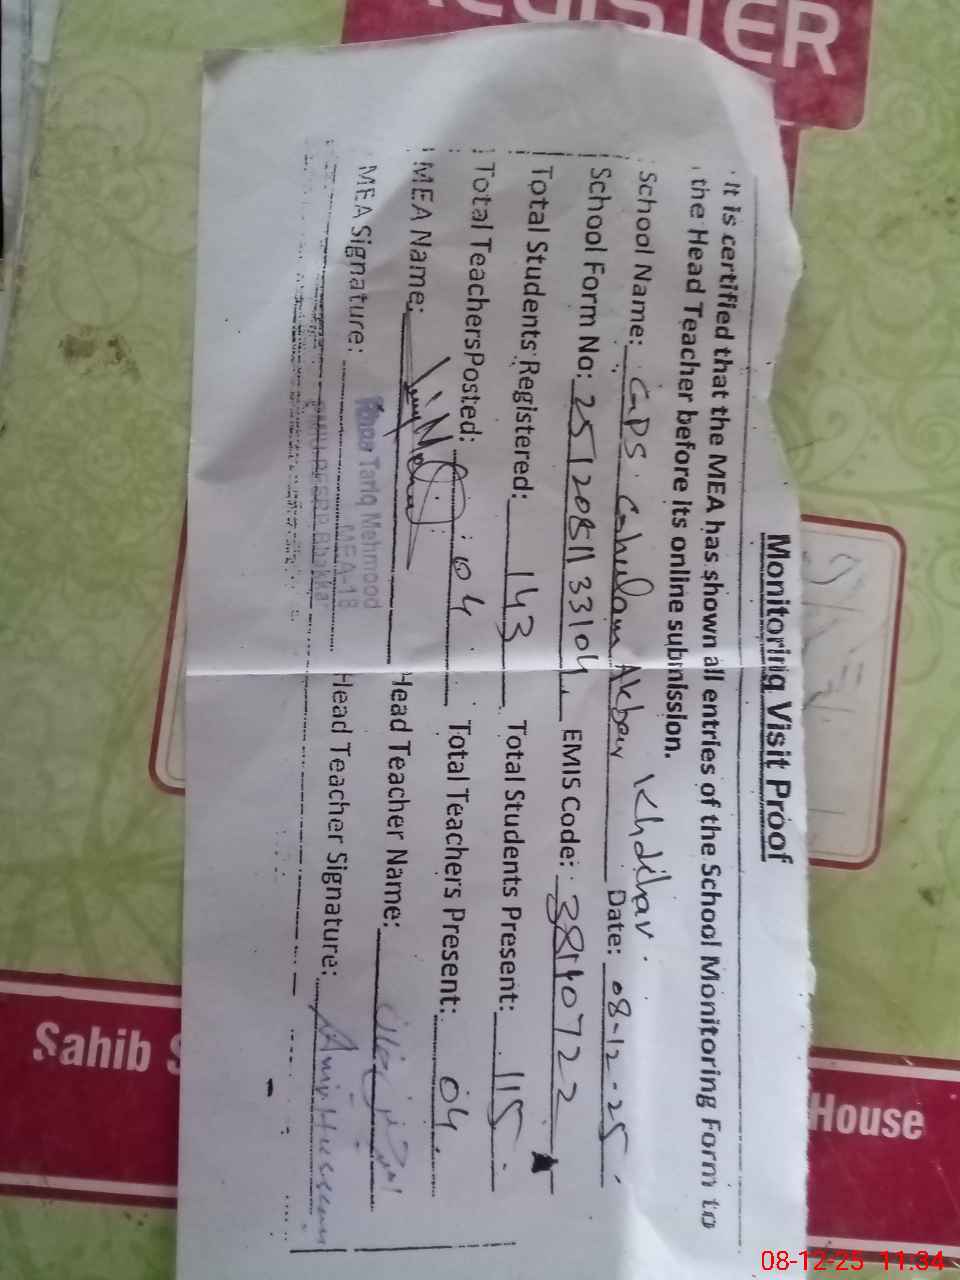 REGISTER
Monitoring Visit Proof
It is certified that the MEA has shown all entries of the School Monitoring Form to
the Head Teacher before its online submission.
School Name: GPS Gohulam Akbar Khokhar Date: 08-12-25
School Form No: EMIS Code:
Total Students Registered: 143 Total Students Present: 115
Total Teachers Posted: 04 Total Teachers Present: 04
MEA Name: Head Teacher Name:
MEA Signature: Head Teacher Signature: Amir Hussain
Rana Tariq Mehmood
MEA-18
Bhakkar
Sahib S
House
08-12-25 11:34